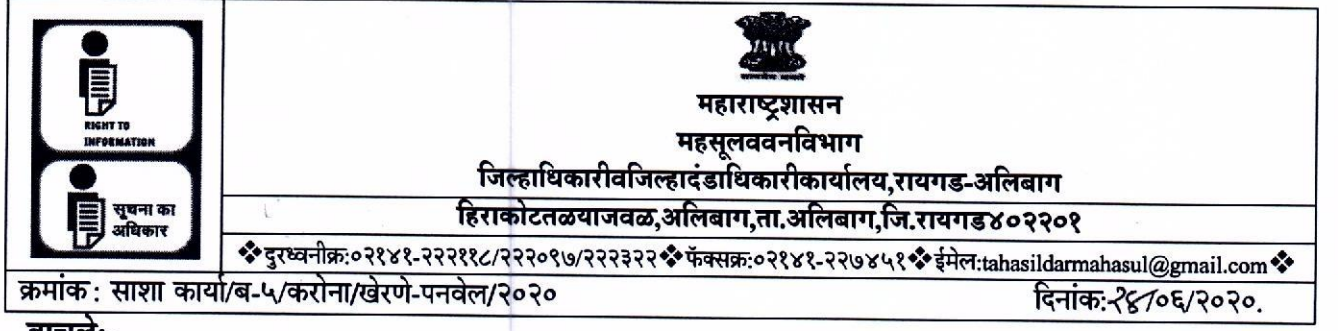 RIGHT TO
INFORMATION
सूचना का
अधिकार
महाराष्ट्रशासन
महसूलववनविभाग
जिल्हाधिकारीवजिल्हादंडाधिकारीकार्यालय,रायगड-अलिबाग
हिराकोटतळयाजवळ,अलिबाग,ता.अलिबाग,जि.रायगड४०२२०१
❖दुरध्वनीक्र:०२१४१-२२२११८/२२२०९७/२२२३२२❖फॅक्सक्र:०२१४१-२२७४५१❖ईमेल:tahasildarmahasul@gmail.com❖
क्रमांक: साशा कार्या/ब-५/करोना/खेरणे-पनवेल/२०२०
दिनांक:-/०६/२०२०.